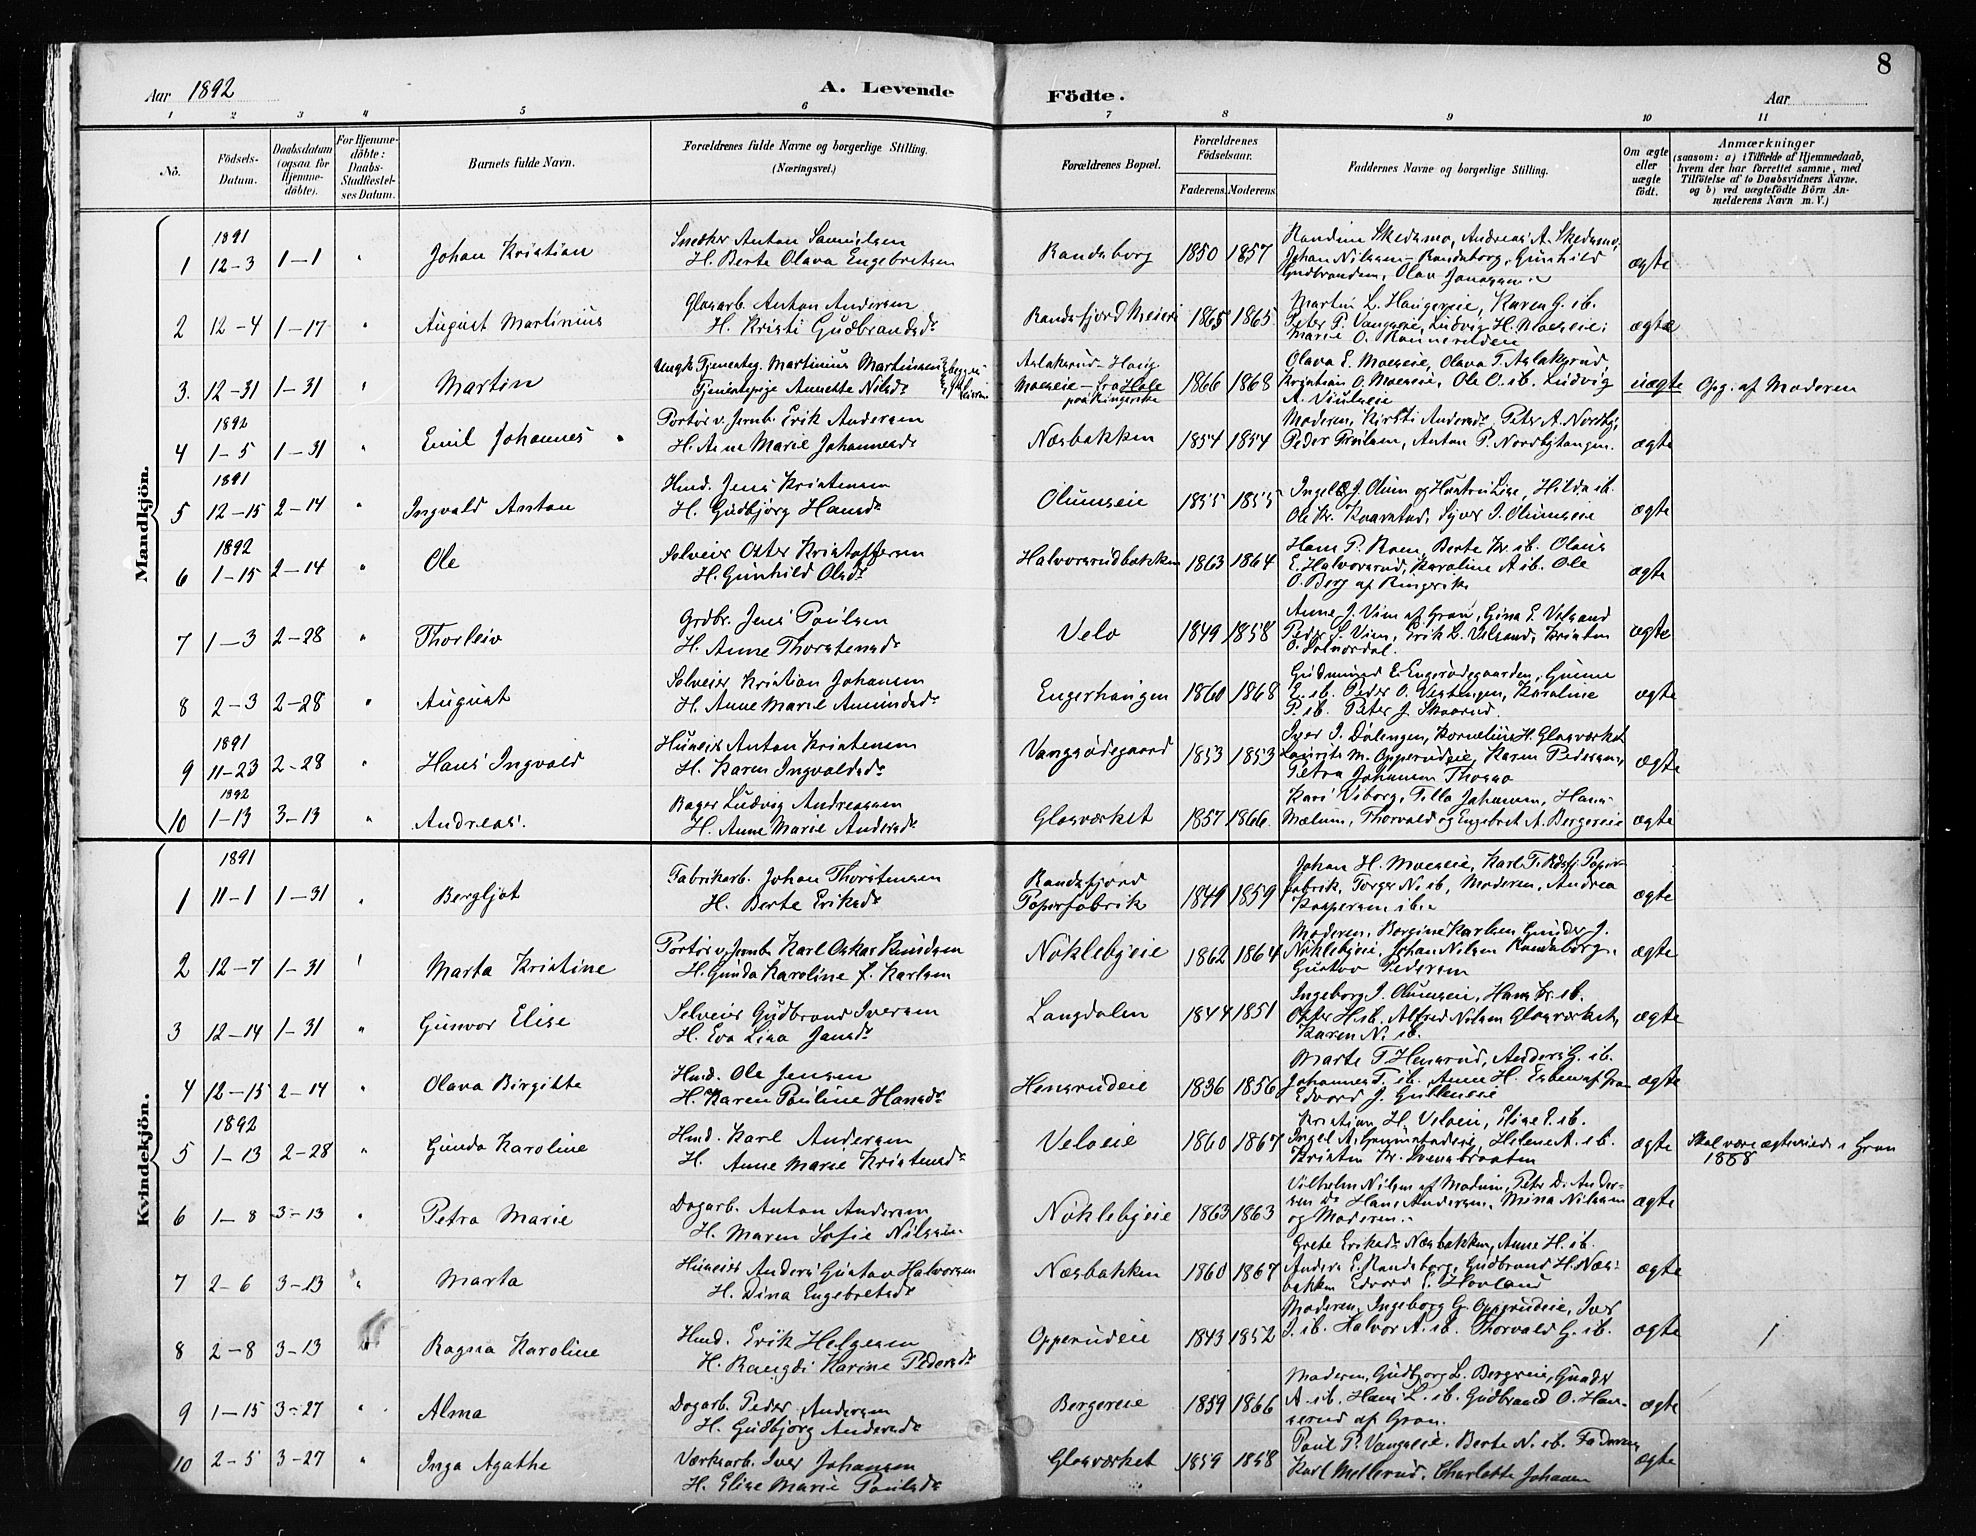 8
Aar 1892
A. Levende Födte.
Aar
1 2 3 4 5 6 7 8 9 10 11
No.
Födsels-Datum.
Daabsdatum (ogsaa for Hjemme-döbte).
For Hjemme-döbte: Daabs-Stadfæstel-ses Datum.
Barnets fulde Navn.
Forældrenes fulde Navne og borgerlige Stilling. (Næringsvei.)
Forældrenes Bopæl.
Forældrenes Födselsaar.
Faderens. Moderens.
Faddernes Navne og borgerlige Stilling.
Om ægte eller uægte födt.
Anmærkninger
(saasom: a) i Tilfælde af Hjemmedaab, hvem der har forrettet samme, med Tilföielse af to Daabsvidners Navne, og b) ved uægtefödte Börn Anmelderens Navn m. V.)
Mandkjön.
1 1891 12-3 1-1 " Johan Kristian
Snedker Anton Samuelsen
H. Berte Olava Engebretsen
Randsborg 1850 1857
Randine Skedsmo, Andreas A. Skedsmo,
Johan Nilssen Randsborg, Gunhild
ægte
2 12-4 1-17 " August Martinius
Glasarb. Anton Andersen
H. Kristi Gudbrandsdr
Randsfjord Meieri 1865 1865
Peter P. Vangseie, Ludvig H. Moeseie,
ægte
3. 12-31 1-31 " Martin
Ungk. Tjenesteg. Martinius Martinsen
Tjenestepige Annette Nilsdr
Moeseie - fra Hole
paa Ringerike
1866 1868
Olava E. Moeseie, Olava T. Aslaksrud,
Kristian O. Moeseie, Ole O. ib. Ludvig
uægte Opg. af Moderen
4 1892 1-5 1-31 " Emil Johannes
Portör v. Jernb. Erik Andersen
H. Anne Marie Johannesdr
Næsbakken 1854 1854
Moderen, Kirsti Andersdr, Peter A. Nordby,
Anton P. Nordbytangen.
ægte
5 1891 12-15 2-14 " Ingvald Anton
Hmd. Jens Kristensen
H. Gudbjörg Hansdr
Olumseie 1855 1855
Ingel J. Olum og Hustru Lise, Hilda ib.
Ole Kr. Kvarstad, Syver I. Olumseie
ægte
6 1892 1-15 2-14 " Ole
Selveier Otter Kristoffersen
H. Gunhild Olsdr
Halvorsrudbakken 1863 1864
Hans P. Roen, Berte Kr. ib. Olaus
E. Halvorsrud, Karoline A. ib. Ole
O. Berg af Ringerike
ægte
7 1-3 2-28 " Thorleiv
Grdbr. Jens Paulsen
H. Anne Thorstensdr
Velo 1849 1858
Anne J. Vien af Gran, Gina E. Velsand
Peder S. Vien, Erik L. Velsand, Kristen
ægte
8 2-3 2-28 " August
Selveier Kristian Johansen
H. Anne Marie Amundsdr
Engerhaugen 1860 1868
E. ib. Peder O. Karoline
P. ib. Peter J. Skaarud.
ægte
9 1891 11-23 2-28 " Hans Ingvald
Huseier Anton Kristensen
H. Karen Ingvaldsdr
Vangsödegaard 1853 1853
Iver I. Dölengen, Kornelius H. Glasværket
Laurits M. Opperudeie, Karen Pedersen,
Petra Johansen
ægte
10 1892 1-13 3-13 " Andreas.
Bager Ludvig Andreassen
H. Anne Marie Andersdr
Glasværket 1857 1866.
Kari Viborg, Tilla Johansen, Hans
Mælum, Thorvald og Engebret A. Bergereie
ægte
Kvindekjön.
1 1891 11-1 1-31 " Bergljot
Fabrikarb. Johan Thorstensen
H. Berte Eriksdr
Randsfjord
Papirfabrik
1849 1859
Johan H. Moeseie, Karl T. Rdsfj. Papir-
fabrik, Torger N. ib, Moderen, Andrea
Kaspersen ib.
ægte
2 12-7 1-31 " Marta Kristine
Portör v. Jernb. Karl Oskar Knudsen
H. Gunda Karoline f. Karlsen
Nöklebyeie 1862 1864
Moderen, Borgine Karlsen, Gunder J.
Nöklebyeie, Johan Nilsen Randsborg,
Gustav Pedersen
ægte
3 12-14 1-31 " Gunvor Elise
Selveier Gudbrand Iversen
H. Eva Lisa Jansdr
Langdalen 1844 1851
Ingeborg I. Olumseie, Hans Kr. ib.
Otter H. ib. Alfred Nilsen Glasværket,
Karen N. ib.
ægte
4 12-15 2-14 " Olava Birgitte
Hmd. Ole Jensen
H. Karen Pauline Hansdr
Hensrudeie 1836 1856
Marte T. Hensrud, Anders G. ib.
Johannes T. ib. Anne H. af Gran
Edvard J. Gulleneie
ægte
5 1892 1-13 2-28 " Gunda Karoline
Hmd. Karl Andersen
H. Anne Marie Kristensdr
Veloeie 1860 1867
Kristian H. Veloeie, Elise E. ib.
Helene A. ib.
Kristen Kr. Svenebraaten
ægte Skal være ægteviede i Gran
1888
6 1-8 3-13 " Petra Marie
Dagarb. Anton Andersen
H. Maren Sofie Nilssen
Nöklebyeie 1863 1863
Vilhelm Nilsen af Modum, Peter D. Ander-
sen, Do Hans Andersen, Mina Nilssen
og Moderen.
ægte
7 2-6 3-13 " Marta
Huseier Anders Gustav Halvorsen
H. Dina Engebretsdr
Næsbakken 1860 1867
Grete Eriksdr Næsbakken, Anne H. ib.
Anders E. Randsborg, Gudbrand H. Næs-
bakken Edvard E. Hovland
ægte
8 2-8 3-13 " Ragna Karoline
Hmd. Erik Helgesen
H. Rangdi Karine Pedersdr
Opperudeie 1843 1852
Moderen, Ingeborg G. Opperudeie, Iver
I. ib. Halvor A. ib. Thorvald G. ib.
ægte
9 1-15 3-27 " Alma
Dagarb. Peder Andersen
H. Gudbjörg Andersdr
Bergereie 1859 1866
Moderen, Gudbjorg L. Bergereie, Gunder
A. ib. Hans L. ib. Gudbrand O. Han-
serud af Gran.
ægte
10 2-5 3-27 " Inga Agathe
Værksarb. Iver Johansen
H. Elise Marie Paulsdr
Glasværket 1859 1858
Paul P. Vangseie, Berte N. ib. Faderen,
Karl Mellerud, Charlotte Johansen
ægte